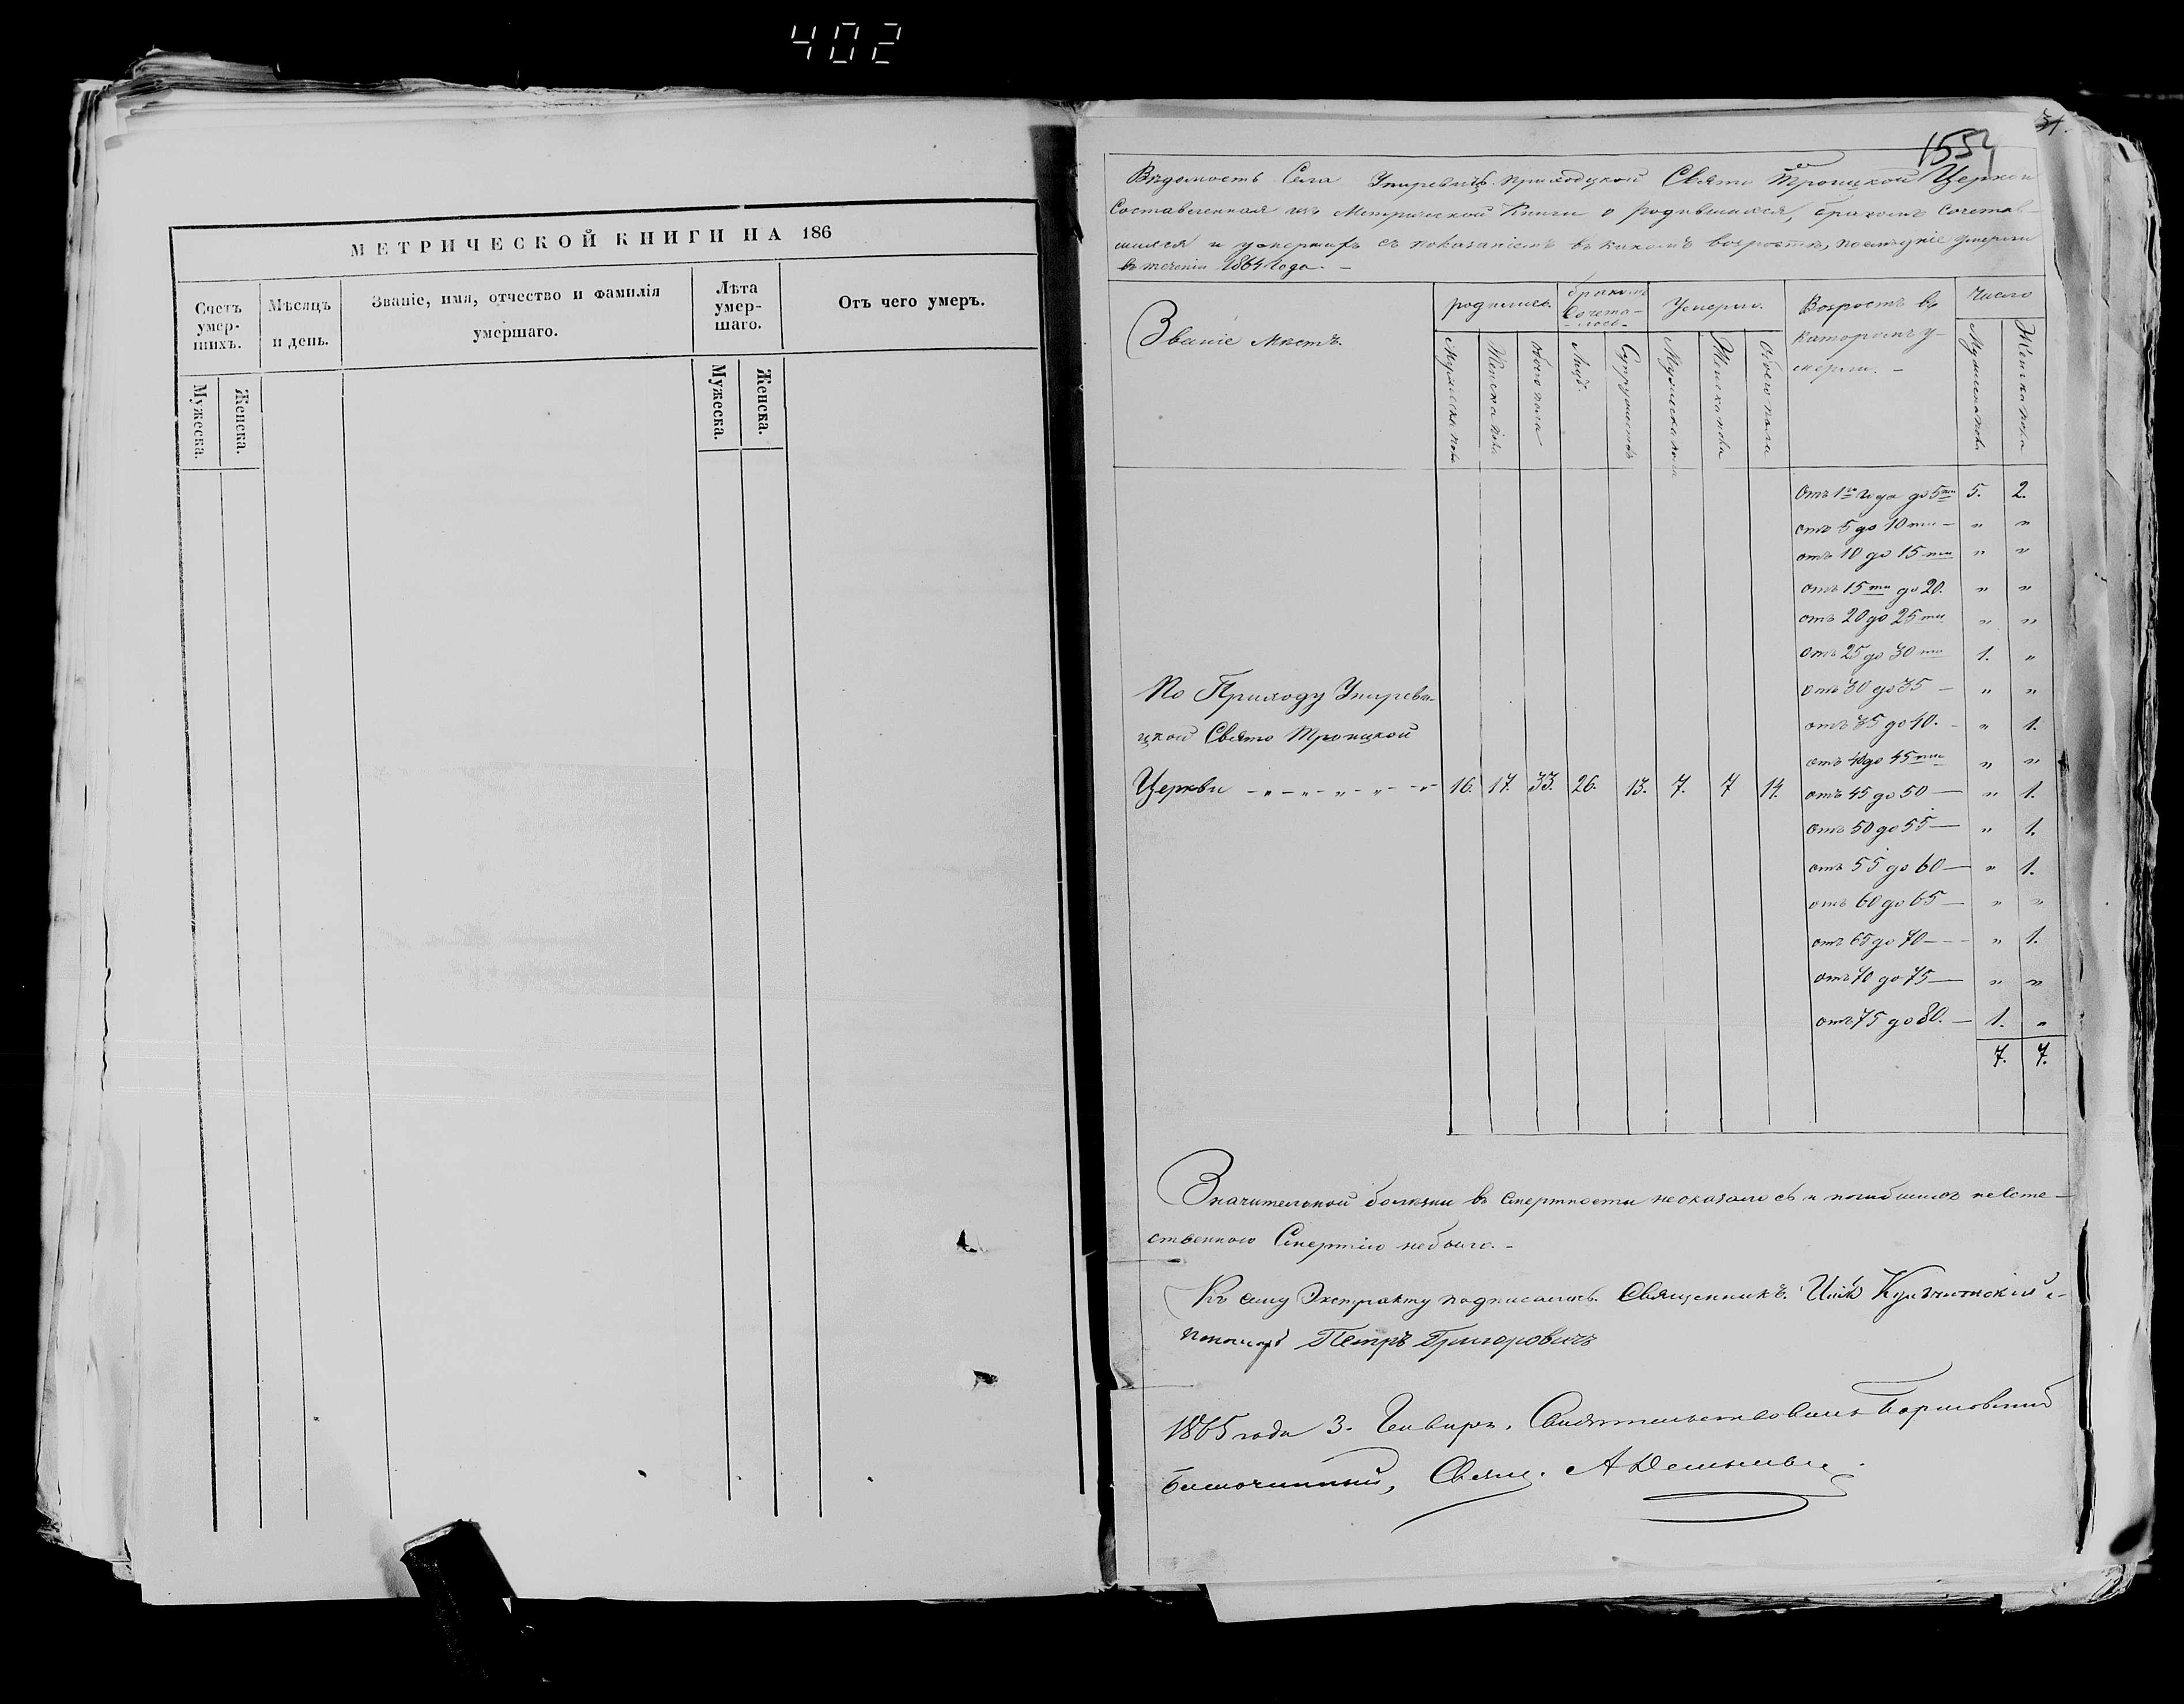 402
МЕТРИЧЕСКОЙ КНИГИ НА 186
Счетъ умер-шихъ.
Мѣсяцъ и день.
Званіе, имя, отчество и фамилія умершаго.
Лѣта умер-шаго.
Отъ чего умеръ.
Мужеска.
Женска.
Мужеска.
Женска.
Вѣдомость Села приходской Свято Троицкой Церкви
Составленная изъ Метрической Книги о родившихся, бракомъ сочетав-
шихся и умершихъ съ показаніемъ въ какомъ возростѣ, умерли
въ теченіи 1864 Года. —
Званіе мѣстъ.
родились.
бракомъ Сочета-лось.
Умерли.
Возростъ въ которомъ у-мерли. —
Число
Мужеска пола
Женска пола
обоего пола
Лицъ.
Супружествъ
Мужеска пола
Женска пола
Обоего пола
Мужеска пола
Женска пола
Отъ 1го года до 5ти 5. 2.
отъ 5 до 10ти — " "
отъ 10 до 15ти " "
отъ 15ти до 20. " "
отъ 20 до 25ти " "
отъ 25 до 30ти 1. "
отъ 30 до 35 — " "
отъ 35 до 40. — " 1.
отъ 40 до 45ти " "
По Приходу
цкой Свято Троицкой
Церкви — " — " — " — " — " 16. 17. 33. 26. 13. 7. 7 14. отъ 45 до 50 — " 1.
отъ 50 до 55 — " 1.
отъ 55 до 60 — " 1.
отъ 60 до 65 — " "
отъ 65 до 70 — " 1.
отъ 70 до 75 — " "
отъ 75 до 80. — 1. "
7. 7.
Значительной болѣзни въ смертности неоказалось и погибшихъ неесте-
ственною Смертію небыло. —
Къ сему Экстракту подписались. Священникъ. и
пономарь Петръ Григоровичъ
1865 года 3. Генваря. Свидѣтельствовалъ
благочинный, Свящ. А